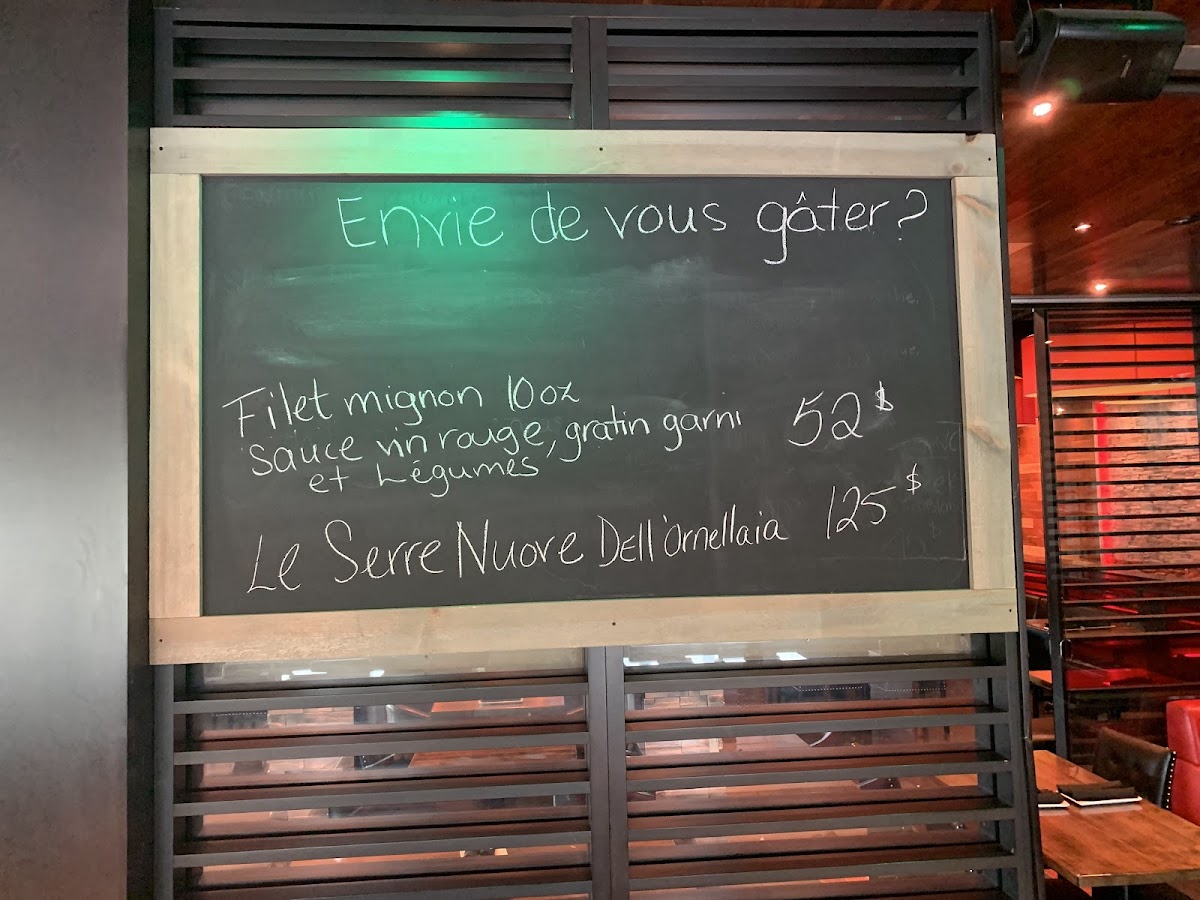 Envie de vous gâter?
Filet mignon 10oz
sauce vin rouge, gratin garni 52$
et Légumes
Le Serre Nuove Dell'Ornellaia 125$